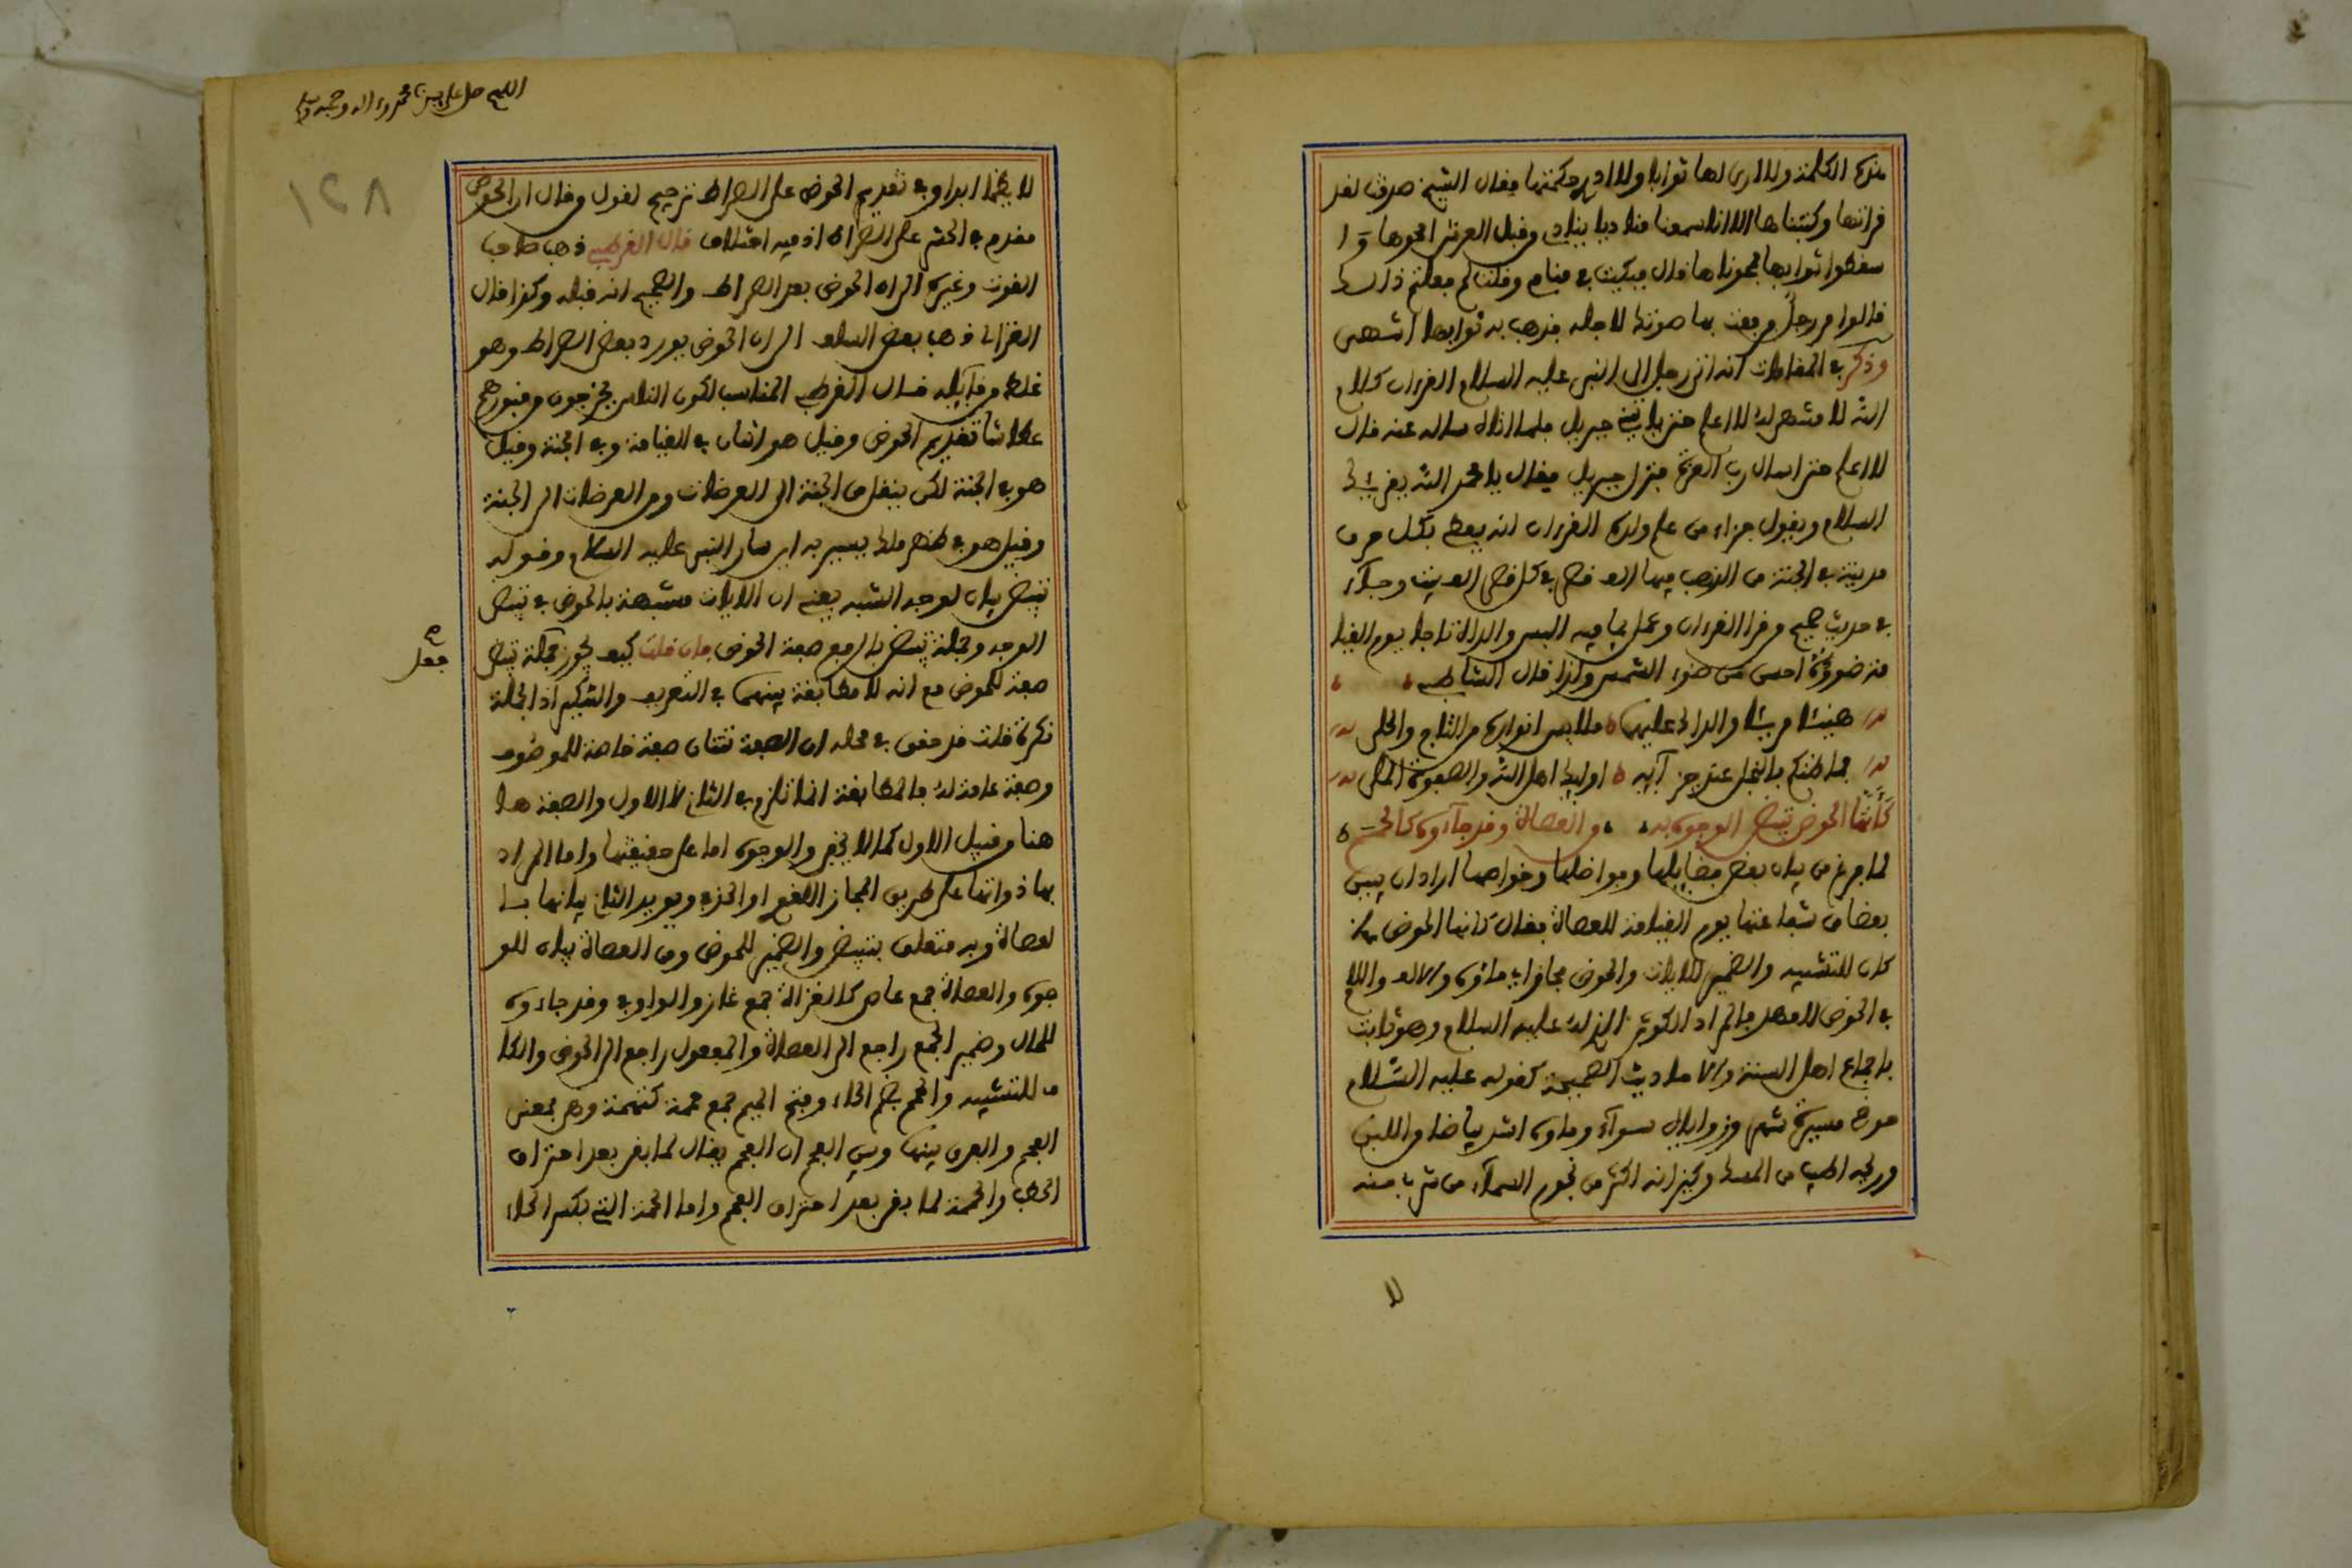 هذه الكلمة ولا ارى لها ثوابا ولا ادر حكمتها فقال الشيخ صدقت لقد
قرأتها وكتبناها الا انا سمعنا مناديا ينادي من قبل العرش امحوها وا
سقطوا ثوابها فمحوناها قال فبكيت في منامي وقلت لم فعلتم ذالك
قالوا مر رجل فرفعت بها صوتك لاجله فذهب به ثوابها انتهى
وذكر في المقامات انه اتى رجل الى النبي عليه السلام القرءان كلام
الله لا منتهى له لا اعلم حتى ياتيني جبريل فلما اتاه ساله عنه قال
لا اعلم حتى اسال رب العزة فنزل جبريل فقال يا محمد الله يقرئك
السلام ويقول جزاء من علم ولده القرءان انه يعطى بكل حرف
مدينة في الجنة من الذهب فيها الف قصر في كل قصر الف بيت وجآء
في حديث صحيح من قرا القرءان وعمل بما فيه البس والداه تاجا يوم القيا
مة ضوؤه احسن من ضوء الشمس ولذا قال الشاطبي
هنيئا مريئا والداك عليهما ملابس انوار من التاج والحلى
فما ظنكم بالنجل عند جزآئه اوليك اهل الله والصفوة الملى
كأنها الحوض تبيض الوجوه به من العصاة وقد جآءوه كالحمم
لما فرغ من بيان بعض فضايلها وفواضلها وخواصها اراد ان يبين
بعضا من شفاعتها يوم القيامة للعصاة فقال كانها الحوض
كان للتشبيه والضمير للايات والحوض مجاز في مآؤه والالف واللام
في الحوض للعهد فالمراد الكوثر الذي له عليه السلام وهو ثابت
باجماع اهل السنة والاحاديث الصحيحة كقوله عليه السلام
حوضي مسيرة شهر وزواياه سوآء وماوه اشد بياضا من اللبن
وريحه اطيب من المسك وكيزانه اكثر من نجوم السمآء من شرب منه
لا
اللهم صل على سيدنا محمد وءاله وصحبه وسلم
١٢٨
لا يظما ابدا وفي تقديم الحوض على الصراط ترجيح لقول من قال ان الحوض
مقدم في الحشر على الصراط اذ فيه اختلاف قال القرطبي ذهب صاحب
القوت وغيره الى ان الحوض بعد الصراط والصحيح انه قبله وكذا قال
الغزالي ذهب بعض السلف الى ان الحوض يورد بعد الصراط وهو
غلط من قآئله قال القرطبي المناسب لكون الناس يخرجون من قبورهم
عطاشا تقديم الحوض وقيل هو اثنان في القيامة وفي الجنة وقيل
هو في الجنة لكن ينقل من الجنة الى العرصات ومن العرصات الى الجنة
وقيل هو في ظهر ملك يسير به اين سار النبي عليه السلام وقوله
تبيض بيان لوجه الشبه يعني ان الايات مشبهة بالحوض في تبيض
الوجه وجملة تبيض بالرفع صفة الحوض فان قلت كيف يجوز جملة تبيض
صفة للحوض مع انه لا مطابقة بينهما في التعريف والتنكير اذ الجملة
نكرة قلت قد حقق في محله ان الصفة ثنتان صفة خاصة للموصوف
وصفة عامة له فالمطابقة انما تلزم في الثاني لا الاول والصفة ها
هنا من قبيل الاول كما لا يخفى والوجوه اما على حقيقتها واما المراد
بها ذواتها على طريق المجاز اللغوي او الجزء ويويد الثاني بيانها با
لعصاة وبه متعلق بتبيض والضمير للحوض ومن العصاة بيان للو
جوه والعصاة جمع عاص كالغزاة جمع غاز والواو في وقد جاءوه
للحال وضمير الجمع راجع الى العصاة والمفعول راجع الى الحوض والكا
ف للتشبيه والحمم بضم الحاء وفتح الميم جمع حممة وهي بمعنى
الفحم والفرق بينها وبين الفحم ان الفحم يقال لما بقي بعد احتراق
الحطب والحممة لما بقي بعد احتراق الفحم واما الحمة التي بكسر الحاء
جعل